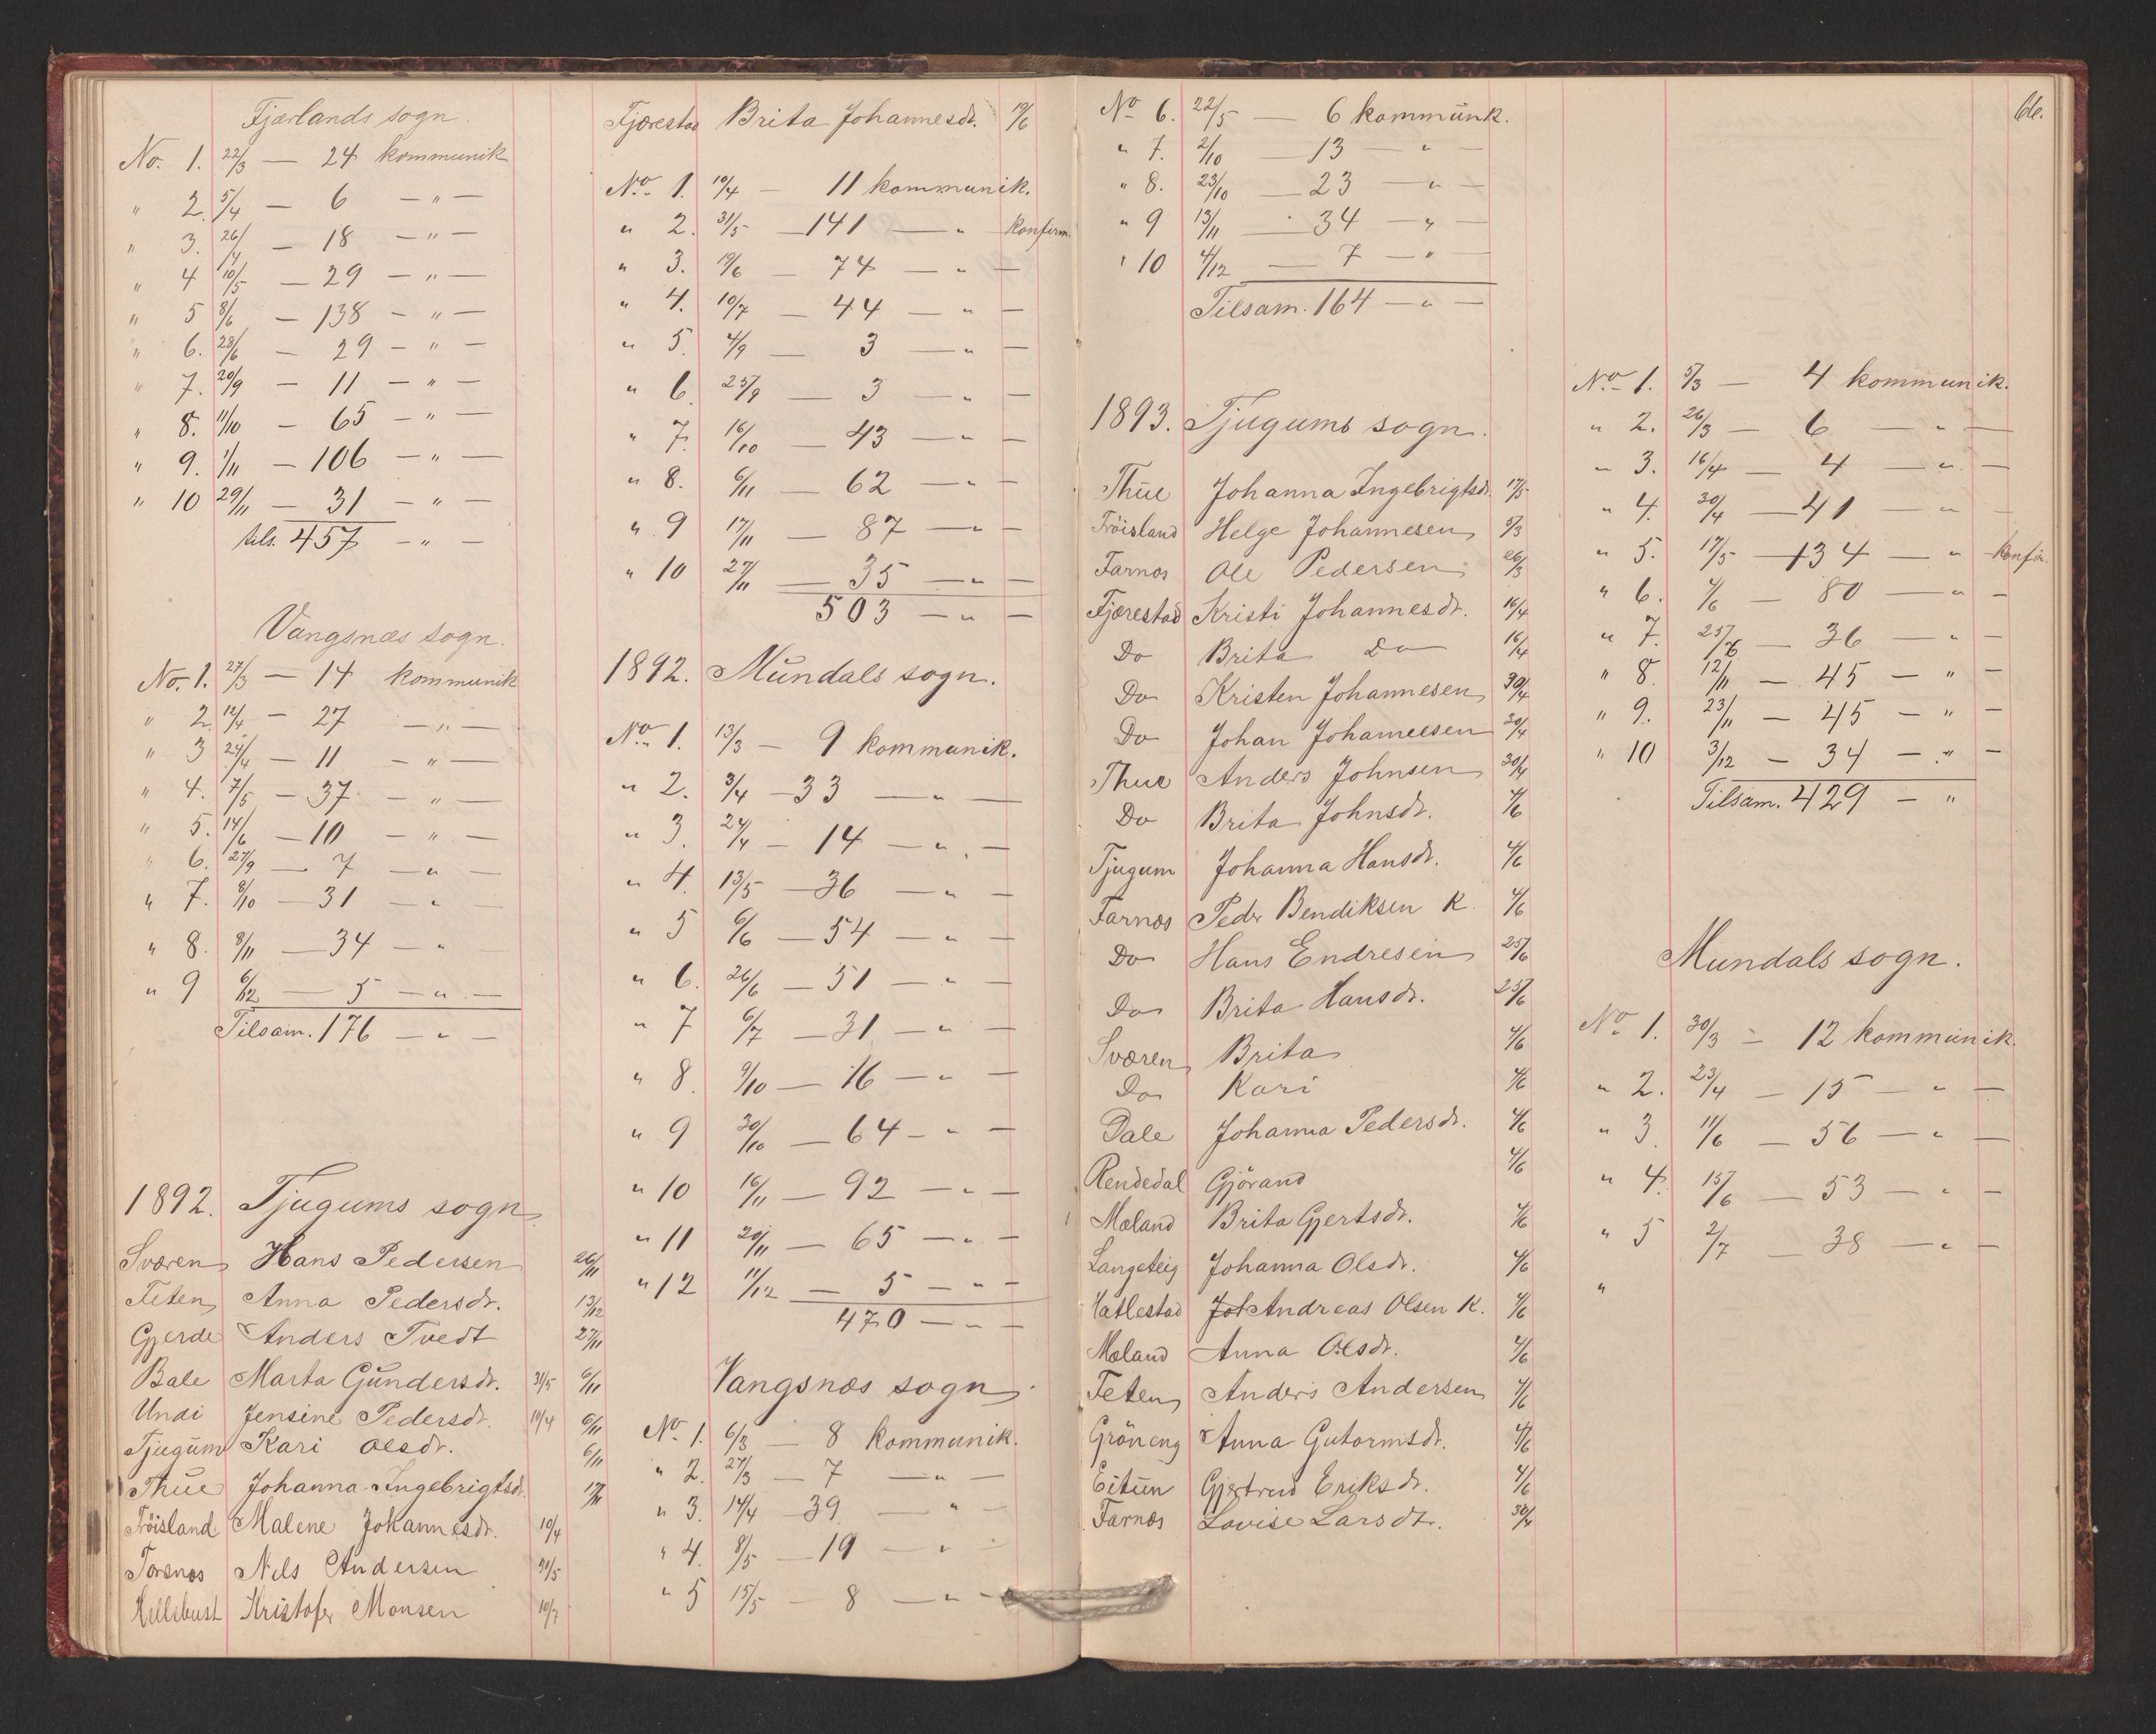 Fjærlands sogn.
No. 1. 22/3 — 24 kommunik
" 2. 5/4 — 6 — " —
" 3. 26/4 — 18 — " —
" 4 10/5 — 29 — " —
" 5 8/6 — 138 — " —
" 6. 28/6 — 29 — " —
" 7. 20/9 — 11 — " —
" 8. 11/10 — 65 — " —
" 9. 1/11 — 106 — " —
" 10 29/11 — 31 — " —
tils. 457 — " —
Vangsnæs sogn.
No. 1. 27/3 — 14 kommunik
" 2. 12/4 — 27 — " —
" 3 24/4 — 11 — " —
" 4. 7/5 — 37 — " —
" 5. 14/6 — 10 — " —
" 6. 27/9 — 7 — " —
" 7. 8/10 — 31 — " —
" 8. 8/11 — 34 — " —
" 9 6/12 — 5 — " —
Tilsam. 176 — " —
1892. Tjugums sogn.
Sværen Hans Pedersen 26/11
Feten Anna Pedersdr. 13/12
Gjerde Anders Tvedt 27/11
Bale Marta Gundersdr. 31/5 6/11
Undi Jensine Pedersdr. 10/4 6/11
Tjugum Kari Olsdr. 6/11
Thue Johanna Ingebrigtsdr. 17/11
Fröisland Malene Johannesdr. 10/4
Torsnæs Nils Andersen 31/5
Hellebust Kristofer Monsen 10/7
Fjærestad Brita Johannesdr. 19/6
No. 1. 10/4 — 11 kommunik.
" 2. 31/5 — 141 — " — Konfirm.
" 3. 19/6 — 74 — " —
" 4. 10/7 — 44 — " —
" 5. 4/9 — 3 — " —
" 6. 25/9 — 3 — " —
" 7. 16/10 — 43 — " —
" 8. 6/11 — 62 — " —
" 9 17/11 — 87 — " —
" 10 27/11 — 35 — " —
503 — " —
1892. Mundals sogn.
No. 1. 13/3 — 9 kommunik.
" 2. 3/4 — 33 — " —
" 3. 24/4 — 14 — " —
" 4. 13/5 — 36 — " —
" 5 6/6 — 54 — " —
" 6. 26/6 — 51 — " —
" 7 6/7 — 31 — " —
" 8. 9/10 — 16 — " —
" 9 30/10 — 64 — " —
" 10 16/11 — 92 — " —
" 11 20/11 — 65 — " —
" 12 11/12 — 5 — " —
470 — " —
Vangsnæs sogn.
No. 1. 6/3 — 8 kommunik.
" 2. 27/3 — 7 — " —
" 3. 14/4 — 39 — " —
" 4. 8/5 — 19 — " —
" 5 15/5 — 8 — " —
No. 6. 22/5 — 6 kommunk.
" 7. 2/10 — 13 — " —
" 8. 23/10 — 23 — " —
" 9 13/11 — 34 — " —
" 10 4/12 — 7 — " —
Tilsam. 164 — " —
1893. Tjugums sogn.
Thue Johanna Ingebrigtsdr. 17/5
Fröisland Helge Johannesen 5/3
Farnæs Ole Pedersen 26/3
Fjærestad Kristi Johannesdr. 16/4
Do Brita Do 16/4
Do Kristen Johannesen 30/4
Do Johan Johannesen 30/4
Thue Anders Johnsen 30/4
Do Brita Johnsdr. 4/6
Tjugum Johanna Hansdr. 4/6
Farnæs Peder Bendiksen K. 4/6
Do Hans Endresen 25/6
Do Brita Hansdr. 25/6
Sværen Brita 4/6
Do Kari 4/6
Dale Johanna Pedersdr. 4/6
Rendedal Gjörand 4/6
Mæland Brita Gjertsdr. 4/6
Langeteig Johanna Olsdr. 4/6
Hatlestad Joh Andreas Olsen K. 4/6
Mæland Anna Olsdr. 4/6
Feten Anders Andersen 4/6
Gröneng Anna Gutormsdr. 4/6
Eitun Gjertrud Eriksdr. 4/6
Farnæs Lovise Larsdtr. 30/4
No. 1. 5/3 — 4 kommunik.
" 2. 26/3 — 6 — " —
" 3. 16/4 — 4 — " —
" 4. 30/4 — 41 — " —
" 5. 17/5 — 134 — " — Konfir.
" 6. 4/6 — 80 — " —
" 7. 25/6 — 36 — " —
" 8. 12/11 — 45 — " —
" 9. 23/11 — 45 — " —
" 10 3/12 — 34 — " —
Tilsam. 429 — "
Mundals sogn.
No. 1. 30/3 — 12 kommunik.
" 2. 23/4 — 15 — " —
" 3. 11/6 — 56 — " —
" 4. 15/6 — 53 — " —
" 5 2/7 — 38 — " —
"